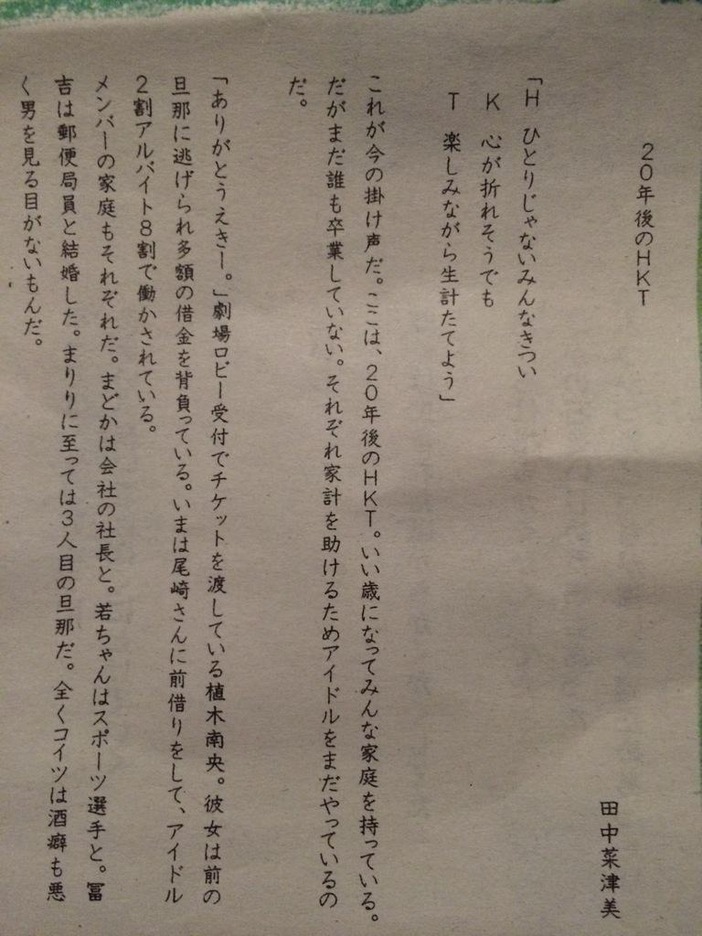 20年後のHKT
田中菜津美
「H ひとりじゃないみんなきつい
K 心が折れそうでも
T 楽しみながら生計たてよう」
これが今の掛け声だ。ここは、20年後のHKT。いい歳になってみんな家庭を持っている。
だがまだ誰も卒業していない。それぞれ家計を助けるためアイドルをまだやっているの
だ。
「ありがとうえきー。」劇場ロビー受付でチケットを渡している植木南央。彼女は前の
旦那に逃げられ多額の借金を背負っている。いまは尾崎さんに前借りをして、アイドル
2割アルバイト8割で働かされている。
メンバーの家庭もそれぞれだ。まどかは会社の社長と。若ちゃんはスポーツ選手と。冨
吉は郵便局員と結婚した。まりりに至っては3人目の旦那だ。全くコイツは酒癖も悪
く男を見る目がないもんだ。